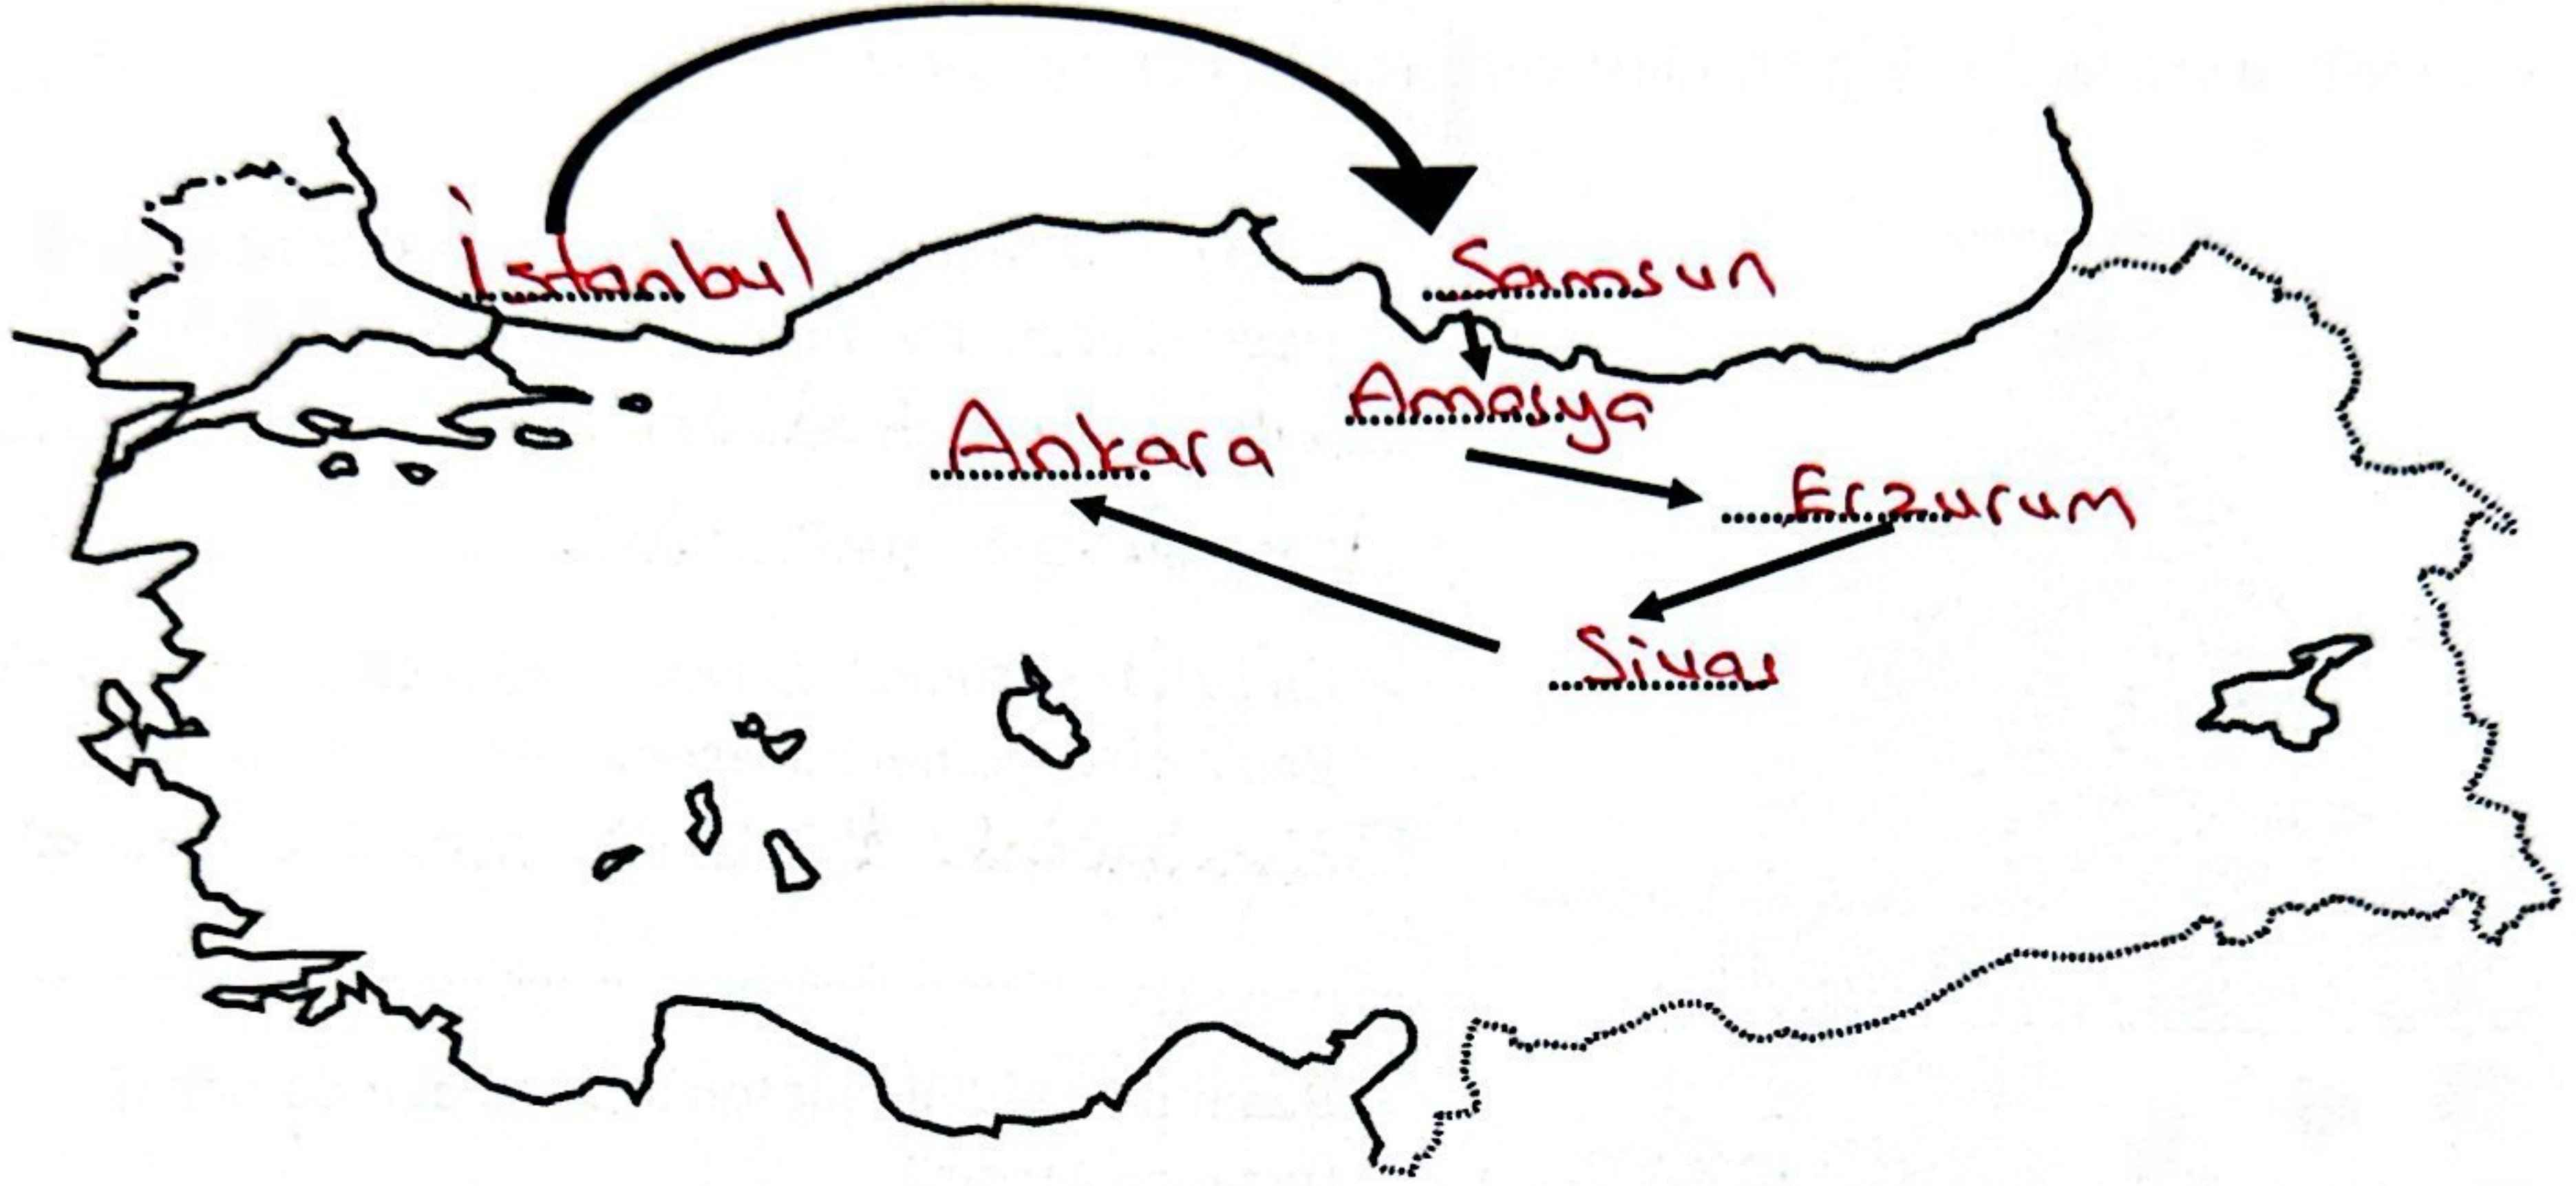 İstanbul
Samsun
Amasya
Ankara
Erzurum
Sivas